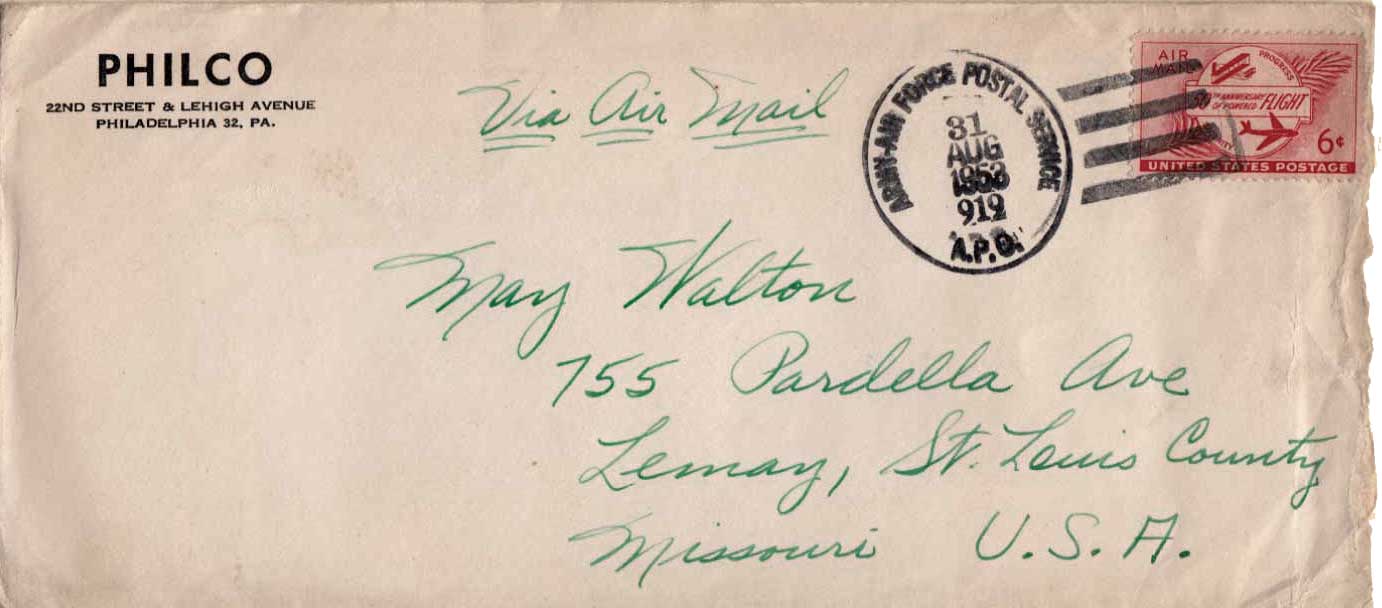 PHILCO
22ND STREET & LEHIGH AVENUE
PHILADELPHIA 32, PA.
Via Air Mail
ARMY-AIR FORCE POSTAL SERVICE
31
AUG
1953
919
A.P.O.
AIR
MAIL
PROGRESS
50TH ANNIVERSARY
OF POWERED FLIGHT
6¢
UNITED STATES POSTAGE
May Walton
755 Pardella Ave
Lemay, St. Louis County
Missouri U.S.A.